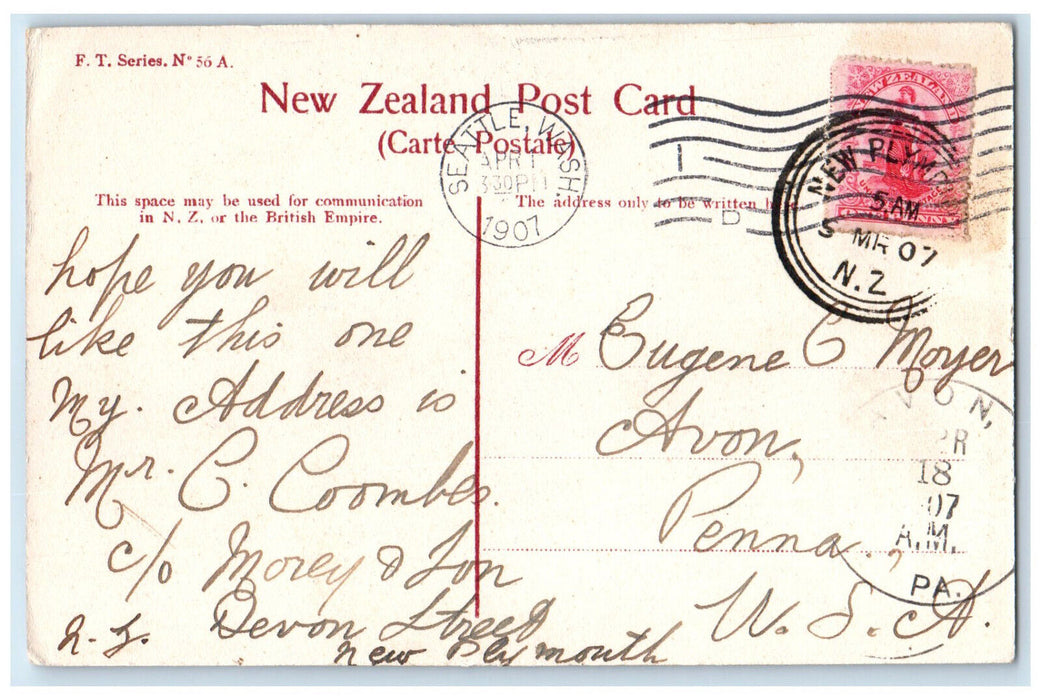 F. T. Series. Nº 56 A.
New Zealand Post Card
(Carte Postale)
This space may be used for communication
in N. Z. or the British Empire.
The address only to be written
SEATTLE, WASH.
APR 1
3 30 PM
1907
1
D
NEW ZEALAND
NEW PLYMO
5 AM
5 MR 07
N.Z
hope you will
like this one
My. Address is
Mr. C. Coombes.
c/o Morey & Son
Devon Street
N. Z. New Plymouth
M Eugene C Moyer
Avon,
Penna.,
U. S. A.
AVON,
PR
18
07
A.M.
PA.